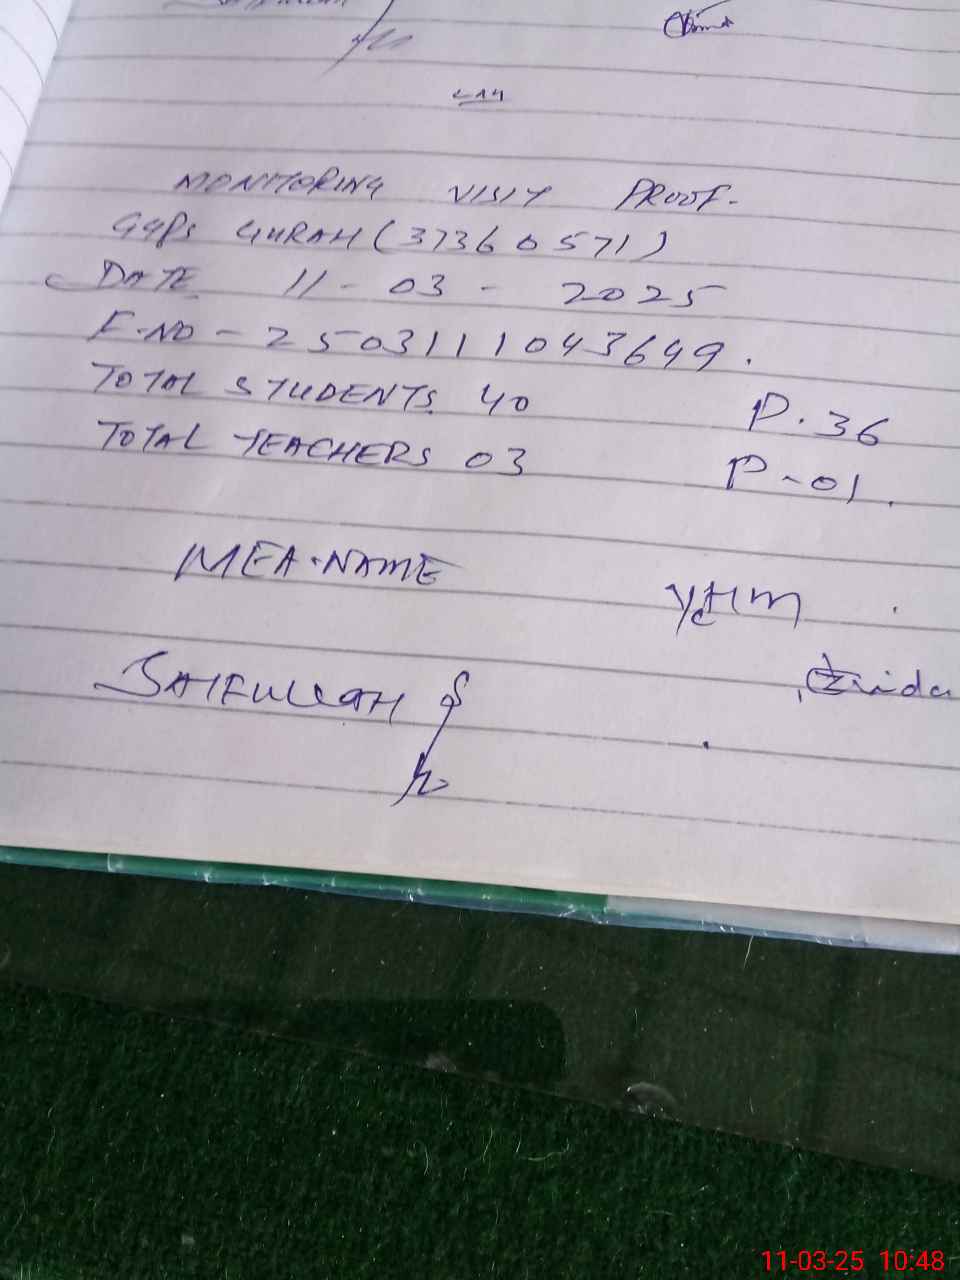 MONITORING VISIT PROOF-
GGPS GURAH (37360571)
DATE 11-03-2025
F.NO - 250311043649.
TOTAL STUDENTS 40 P.36
TOTAL TEACHERS 03 P-01.
MEA.NAME
SAIFULLAH
11-03-25 10:48